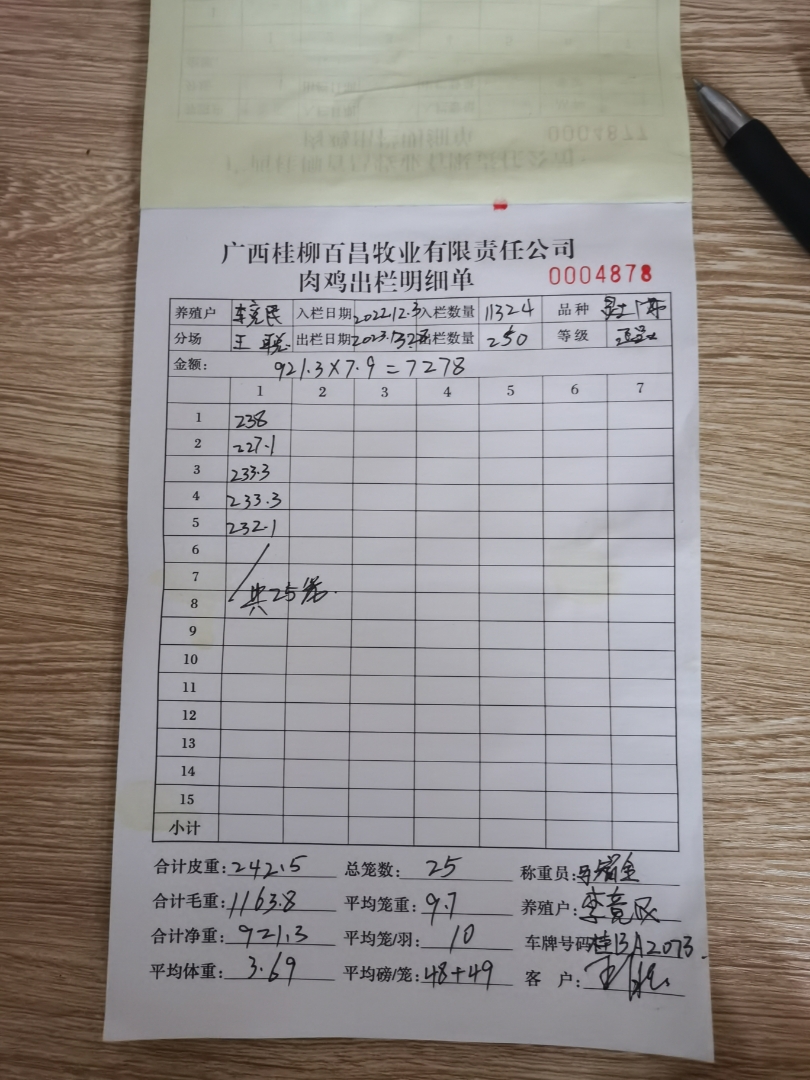 广西桂柳百昌牧业有限责任公司
肉鸡出栏明细单 0004878
养殖户 李竞民 入栏日期 2022.12.3 入栏数量 11324 品种
分场 王 聪 出栏日期 2023. 出栏数量 250 等级
金额: 921.3×7.9=7278
1 2 3 4 5 6 7
1 238
2 227.1
3 233.3
4 233.3
5 232.1
6
7
8 共25笼.
9
10
11
12
13
14
15
小计
合计皮重: 242.5 总笼数: 25 称重员:
合计毛重: 1163.8 平均笼重: 9.7 养殖户: 李竞民
合计净重: 921.3 平均笼/羽: 10 车牌号码 桂BA2073
平均体重: 3.69 平均磅/笼: 48+49 客 户: